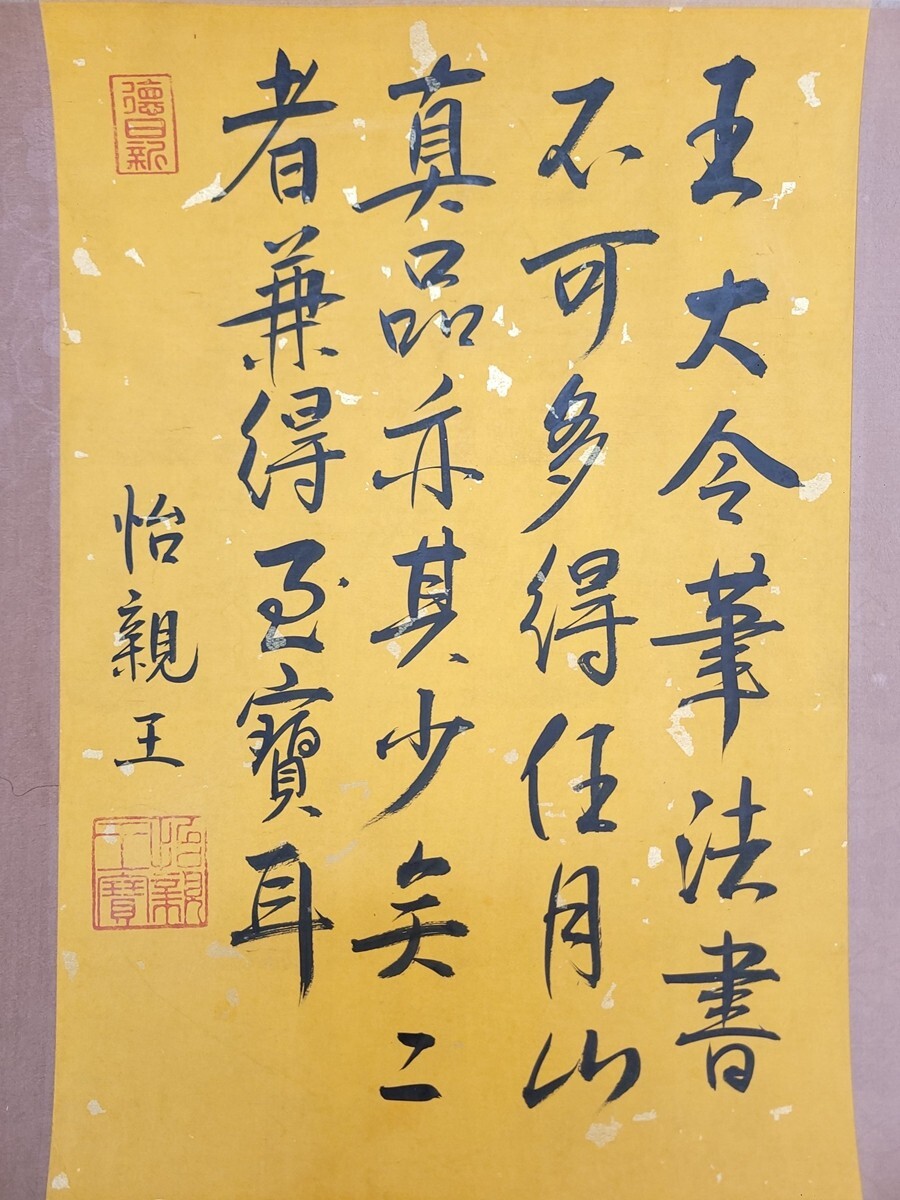 王大令筆法書
不可多得任月山
真品亦其少矣二
者兼得至寶耳
怡親王
德日新
怡親王寶